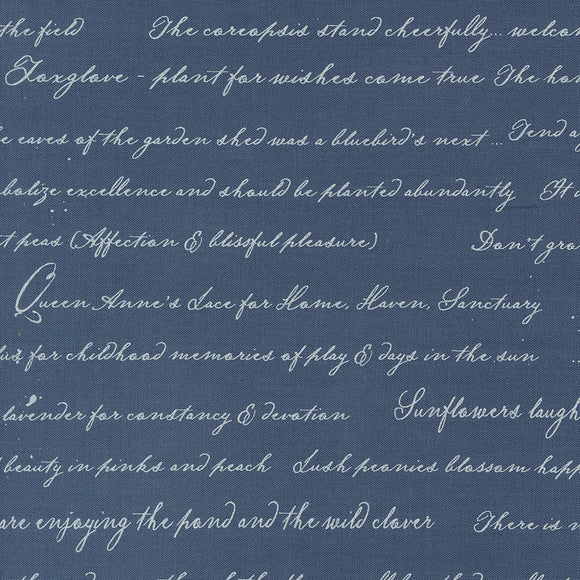 the field The coreopsis stand cheerfully... welcom
Foxglove - plant for wishes come true The hon
e eaves of the garden shed was a bluebird's next ... Tend a
bolize excellence and should be planted abundantly It
t peas (Affection & blissful pleasure) Don't gro
Queen Anne's Lace for Home, Haven, Sanctuary
for childhood memories of play & days in the sun
lavender for constancy & devotion Sunflowers laugh
beauty in pinks and peach Lush peonies blossom happ
are enjoying the pond and the wild clover There is n